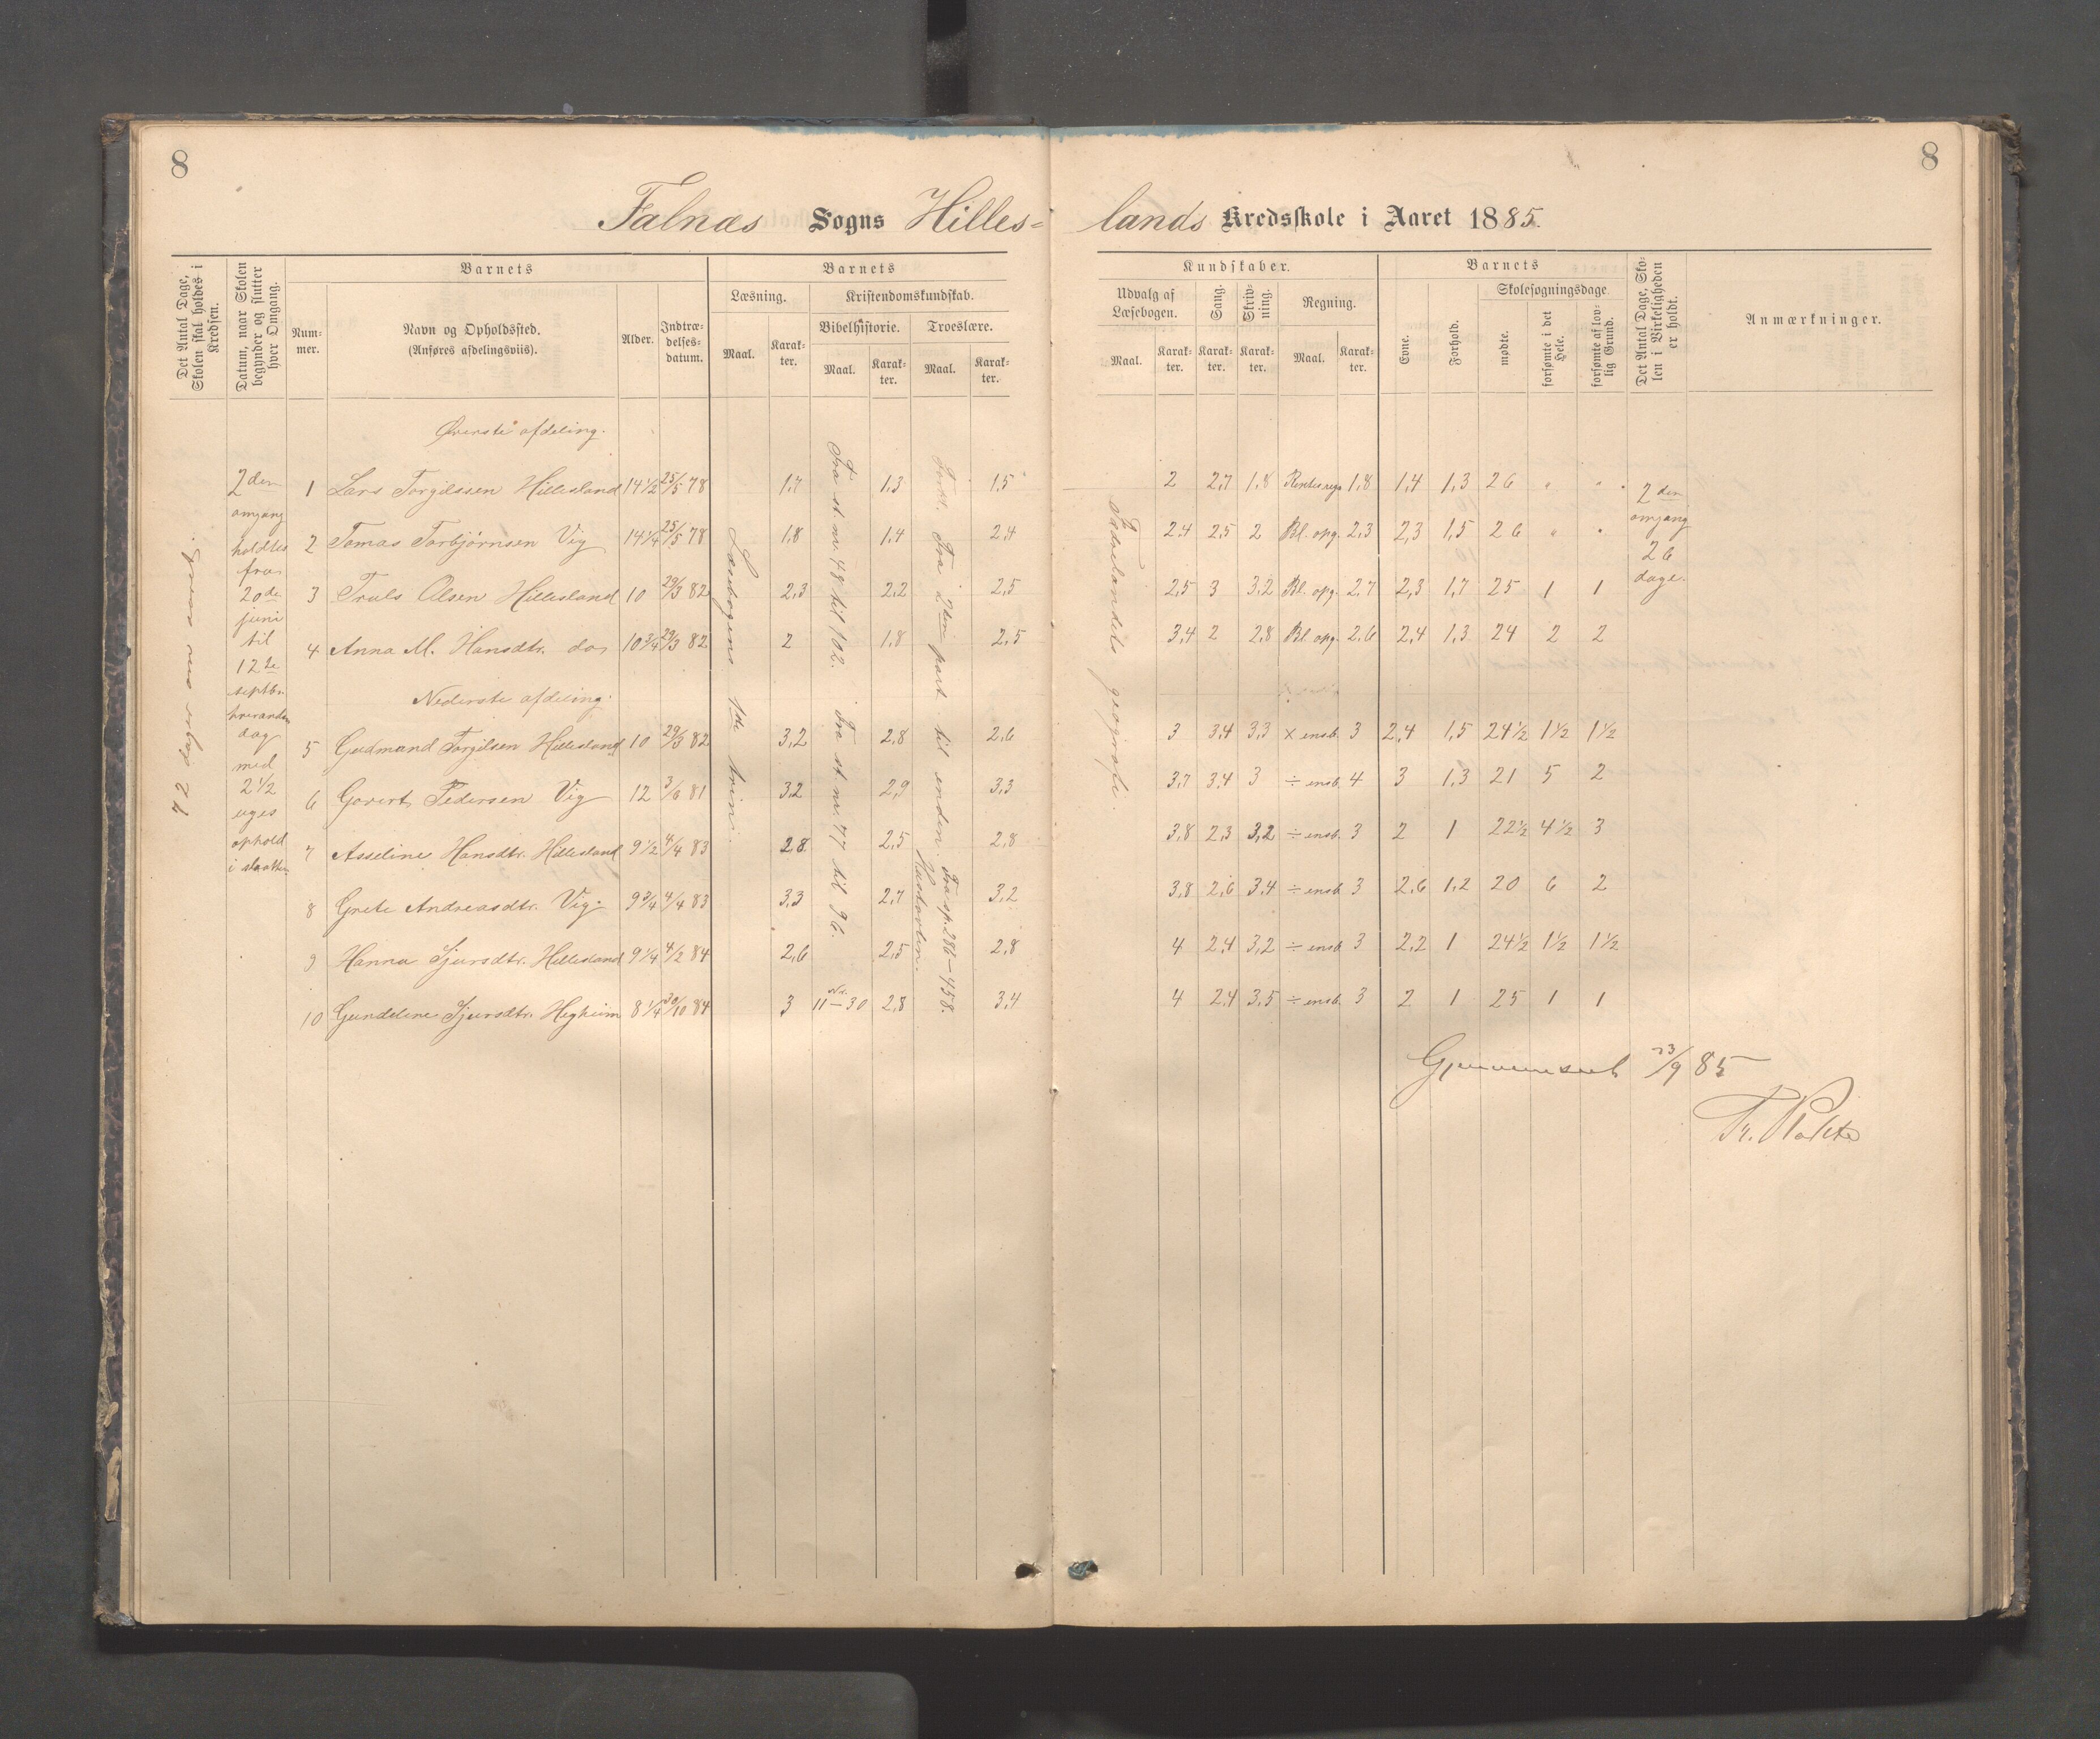 8
8
Falnæs Sogns Hilles=
lands Kredsskole i Aaret 1885.
Det Antal Dage, Skolen skal holdes i Kredsen.
Datum, naar Skolen begynder og slutter hver Omgang.
Barnets
Num-mer.
Navn og Opholdssted.
(Anføres afdelingsviis).
Alder.
Indtræ-delses-datum.
Barnets
Læsning.
Maal.
Karak-ter.
Kristendomskundskab.
Bibelhistorie.
Maal.
Karak-ter.
Troeslære.
Maal.
Karak-ter.
Kundskaber.
Udvalg af Læsebogen.
Maal.
Karak-ter.
Sang.
Karak-ter.
Skriv-ning.
Karak-ter.
Regning.
Maal.
Karak-ter.
Barnets
Evne.
Forhold.
Skolesøgningsdage
mødte.
forsømte i det Hele.
forsømte af lov-lig Grund.
Det Antal Dage, Sko-len i Virkeligheden er holdt.
Anmærkninger.
2den
omgang
holdtes
fra
20de
juni
til
12te
septbr.
hverandn
dag
med
2 1/2
uges
ophold
i slaatten
Læsebogens 1ste trin.
Fra st. nr. 48 til 102.
Fra st. nr. 77 til 96.
Fork. Fra 2den part til enden.
Fra sp. 286–458.
Hustavlen.
Fædrelandets geografi.
Øverste afdeling.
1 Lars Torgilssen Hillesland 14 1/2 25/5 78 1,7 1,3 1,5 2 2,7 1,8 Rentesregn 1,8 1,4 1,3 26 " "
2 Tomas Torbjørnsen Vig 14 1/4 25/5 78 1,8 1,4 2,4 2,4 2,5 2 Bl. opg. 2,3 2,3 1,5 26 " "
3 Truls Olsen Hillesland 10 29/3 82 2,3 2,2 2,5 2,5 3 3,2 Bl. opg. 2,7 2,3 1,7 25 1 1
4 Anna M. Hansdtr. do 10 3/4 29/3 82 2 1,8 2,5 3,4 2 2,8 Bl. opg. 2,6 2,4 1,3 24 2 2
2den
omgang
26
dage.
Nederste afdeling.
5 Gudmund Torgilsen Hillesland 10 29/3 82 3,2 2,8 2,6 3 3,4 3,3 × ensb. 3 2,4 1,5 24 1/2 1 1/2 1 1/2
6 Govert Pedersen Vig 12 3/6 81 3,2 2,9 3,3 3,7 3,4 3 ÷ ensb. 4 3 1,3 21 5 2
7 Asseline Hansdtr. Hillesland 9 1/2 4/4 83 2,8 2,5 2,8 3,8 2,3 3,2 ÷ ensb. 3 2 1 22 1/2 4 1/2 3
8 Grete Andreasdtr. Vig 9 3/4 4/4 83 3,3 2,7 3,2 3,8 2,6 3,4 ÷ ensb. 3 2,6 1,2 20 6 2
9 Hanna Sjursdtr. Hillesland 9 1/4 4/2 84 2,6 2,5 2,8 4 2,4 3,2 ÷ ensb. 3 2,2 1 24 1/2 1 1/2 1 1/2
10 Gundeline Sjursdtr. Hegheim 8 1/4 30/10 84 3 Nr. 11–30 2,8 3,4 4 2,4 3,5 ÷ ensb. 3 2 1 25 1 1
Gjennemseet 23/9 85